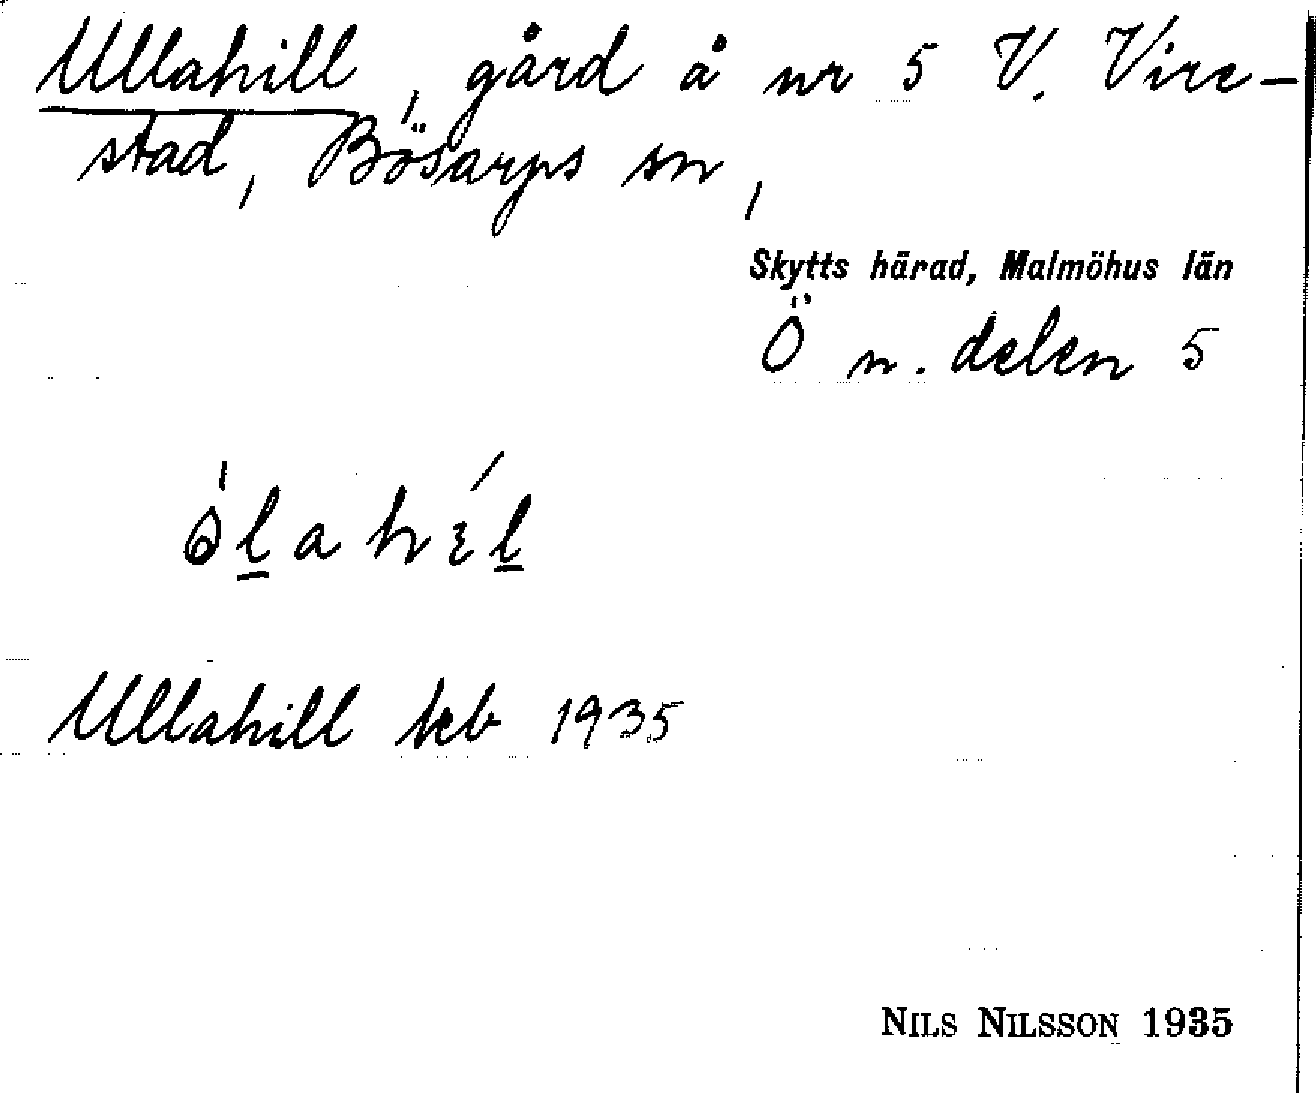 Ullahill, gård å nr 5 V. Vire-
stad, Bösarps sn,
Skytts härad, Malmöhus län
Ö n. delen 5
Ullahill kb 1935
NILS NILSSON 1935